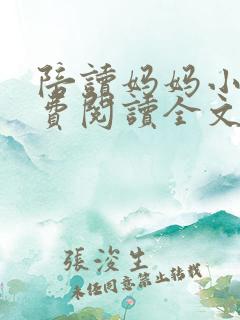 陪讀妈妈小
費閱讀全文
張浚生
未经同意禁止转载